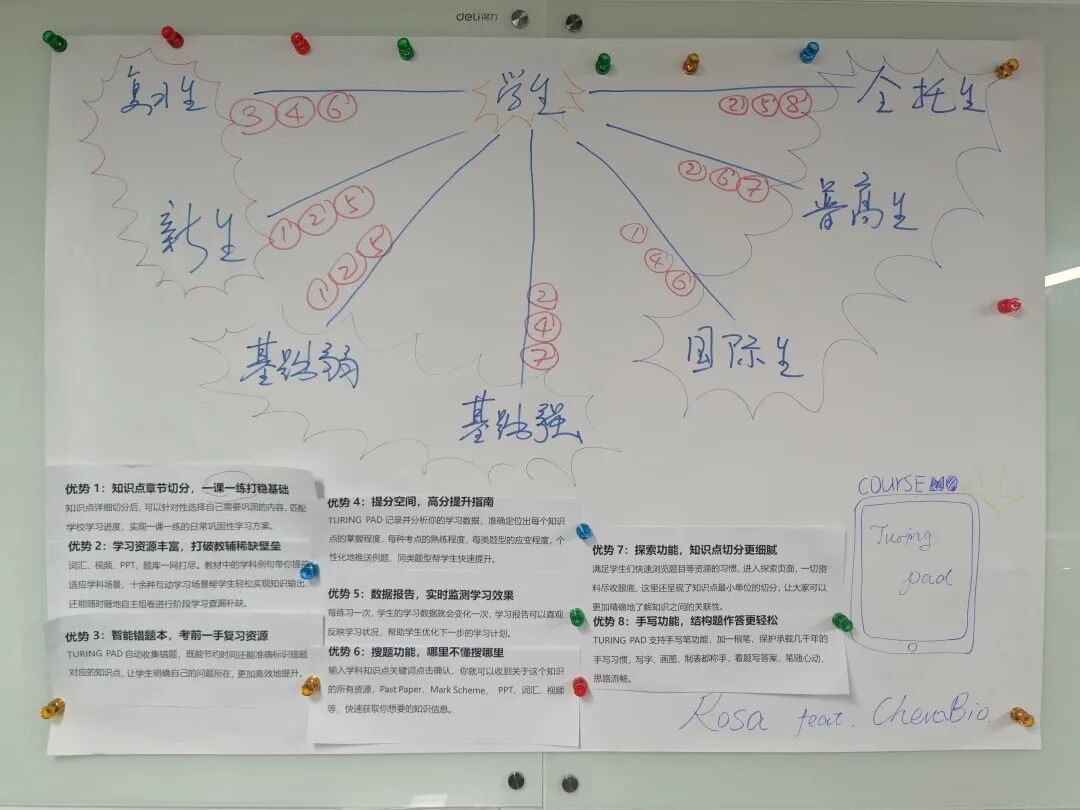 deli得力
复习生
学生
全托生
③④⑥
②⑤⑧
新生
①②⑤
②⑥⑦
普高生
①②⑤
①④⑥
②④⑦
基础弱
国际生
基础强
优势 1：知识点章节切分，一课一练打稳基础
知识点详细切分后，可以针对性选择自己需要巩固的内容，匹配
学校学习进度，实现一课一练的日常巩固性学习方案。
优势 2：学习资源丰富，打破教辅稀缺壁垒
词汇、视频、PPT、题库一网打尽。教材中的学科例句带你提前
适应学科场景，十余种互动学习场景帮学生轻松实现知识输出，
还能随时随地自主组卷进行阶段学习查漏补缺。
优势 3：智能错题本，考前一手复习资源
TURING PAD 自动收集错题，既能节约时间还能准确标识错题
对应的知识点，让学生明确自己的问题所在，更加高效地提升。
优势 4：提分空间，高分提升指南
TURING PAD 记录并分析你的学习数据，准确定位出每个知识
点的掌握程度，每种考点的熟练程度，每类题型的应变程度，个
性化地推送例题、同类题型帮学生快速提升。
优势 5：数据报告，实时监测学习效果
每练习一次，学生的学习数据就会变化一次，学习报告可以直观
反映学习状况，帮助学生优化下一步的学习计划。
优势 6：搜题功能，哪里不懂搜哪里
输入学科知识点关键词点击确认，你就可以收到关于这个知识
的所有资源，Past Paper、Mark Scheme、 PPT、词汇、视频
等，快速获取你想要的知识信息。
优势 7：探索功能，知识点切分更细腻
满足学生们快速浏览题目等资源的习惯，进入探索页面，一切资
料尽收眼底，这里还呈现了知识点最小单位的切分，让大家可以
更加精确地了解知识之间的关联性。
优势 8：手写功能，结构题作答更轻松
TURING PAD 支持手写笔功能，加一根笔，保护承载几千年的
手写习惯，写字、画图、制表都称手，看题写答案，笔随心动，
思路流畅。
COURSE
Turing
pad
Rosa feat. ChenaBio.